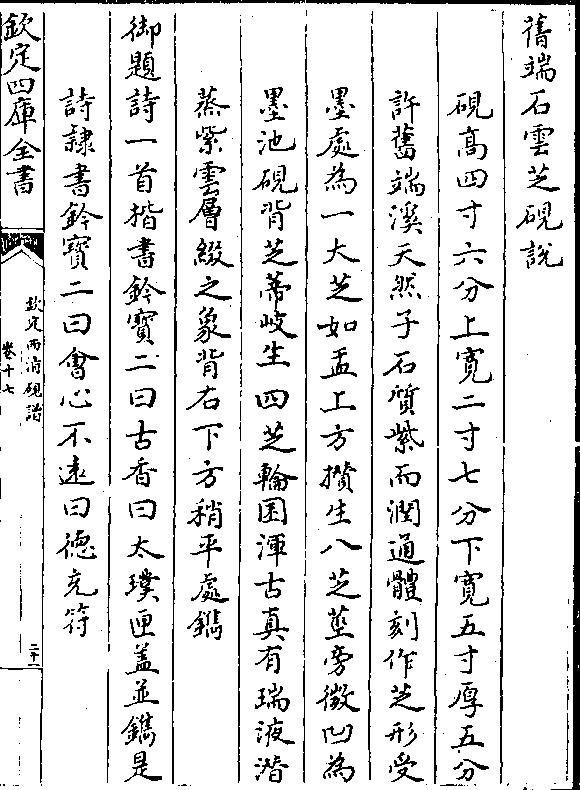 舊端石雲芝硯說
硯高四寸六分上寛二寸七分下寛五寸厚五分
許舊端溪天然子石質紫而潤通體刻作芝形受
墨處為一大芝如盂上方攢生八芝堃旁微凹為
墨池硯背芝蒂岐生四芝輪囷渾古真有瑞液潛
蒸紫雲層綴之象背右下方稍平處鐫
御題詩一首楷書鈐寶二曰古香曰太璞匣蓋並鐫是
詩隸書鈐寶二曰會心不遠曰德充符
欽定四庫全書
欽定西清硯譜
卷十七
二十一